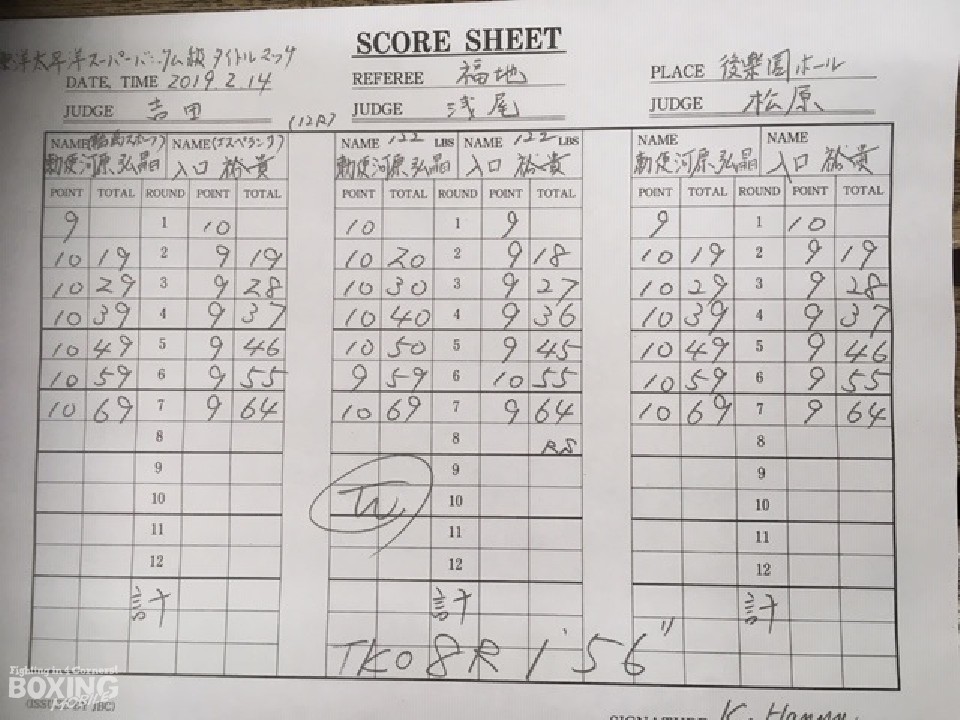 SCORE SHEET
太平洋スーパーバンタム級タイトルマッチ
DATE, TIME 2019.2.14 REFEREE 福地 PLACE 後楽園ホール
JUDGE 吉田 (12R) JUDGE 浅尾 JUDGE 松原
NAME NAME(エスペランサ) NAME 122 LBS NAME 122 LBS NAME NAME
勅使河原弘晶 入口 裕貴 勅使河原弘晶 入口 裕貴 勅使河原弘晶 入口 裕貴
POINT TOTAL ROUND POINT TOTAL POINT TOTAL ROUND POINT TOTAL POINT TOTAL ROUND POINT TOTAL
9 1 10 10 1 9 9 1 10
10 19 2 9 19 10 20 2 9 18 10 19 2 9 19
10 29 3 9 28 10 30 3 9 27 10 29 3 9 28
10 39 4 9 37 10 40 4 9 36 10 39 4 9 37
10 49 5 9 46 10 50 5 9 45 10 49 5 9 46
10 59 6 9 55 9 59 6 10 55 10 59 6 9 55
10 69 7 9 64 10 69 7 9 64 10 69 7 9 64
8 8 RS 8
9 9 9
10 10 10
11 11 11
12 12 12
計 計 計
TKO 8R 1'56"
Fighting in 4 Corners!
BOXING
MOBILE